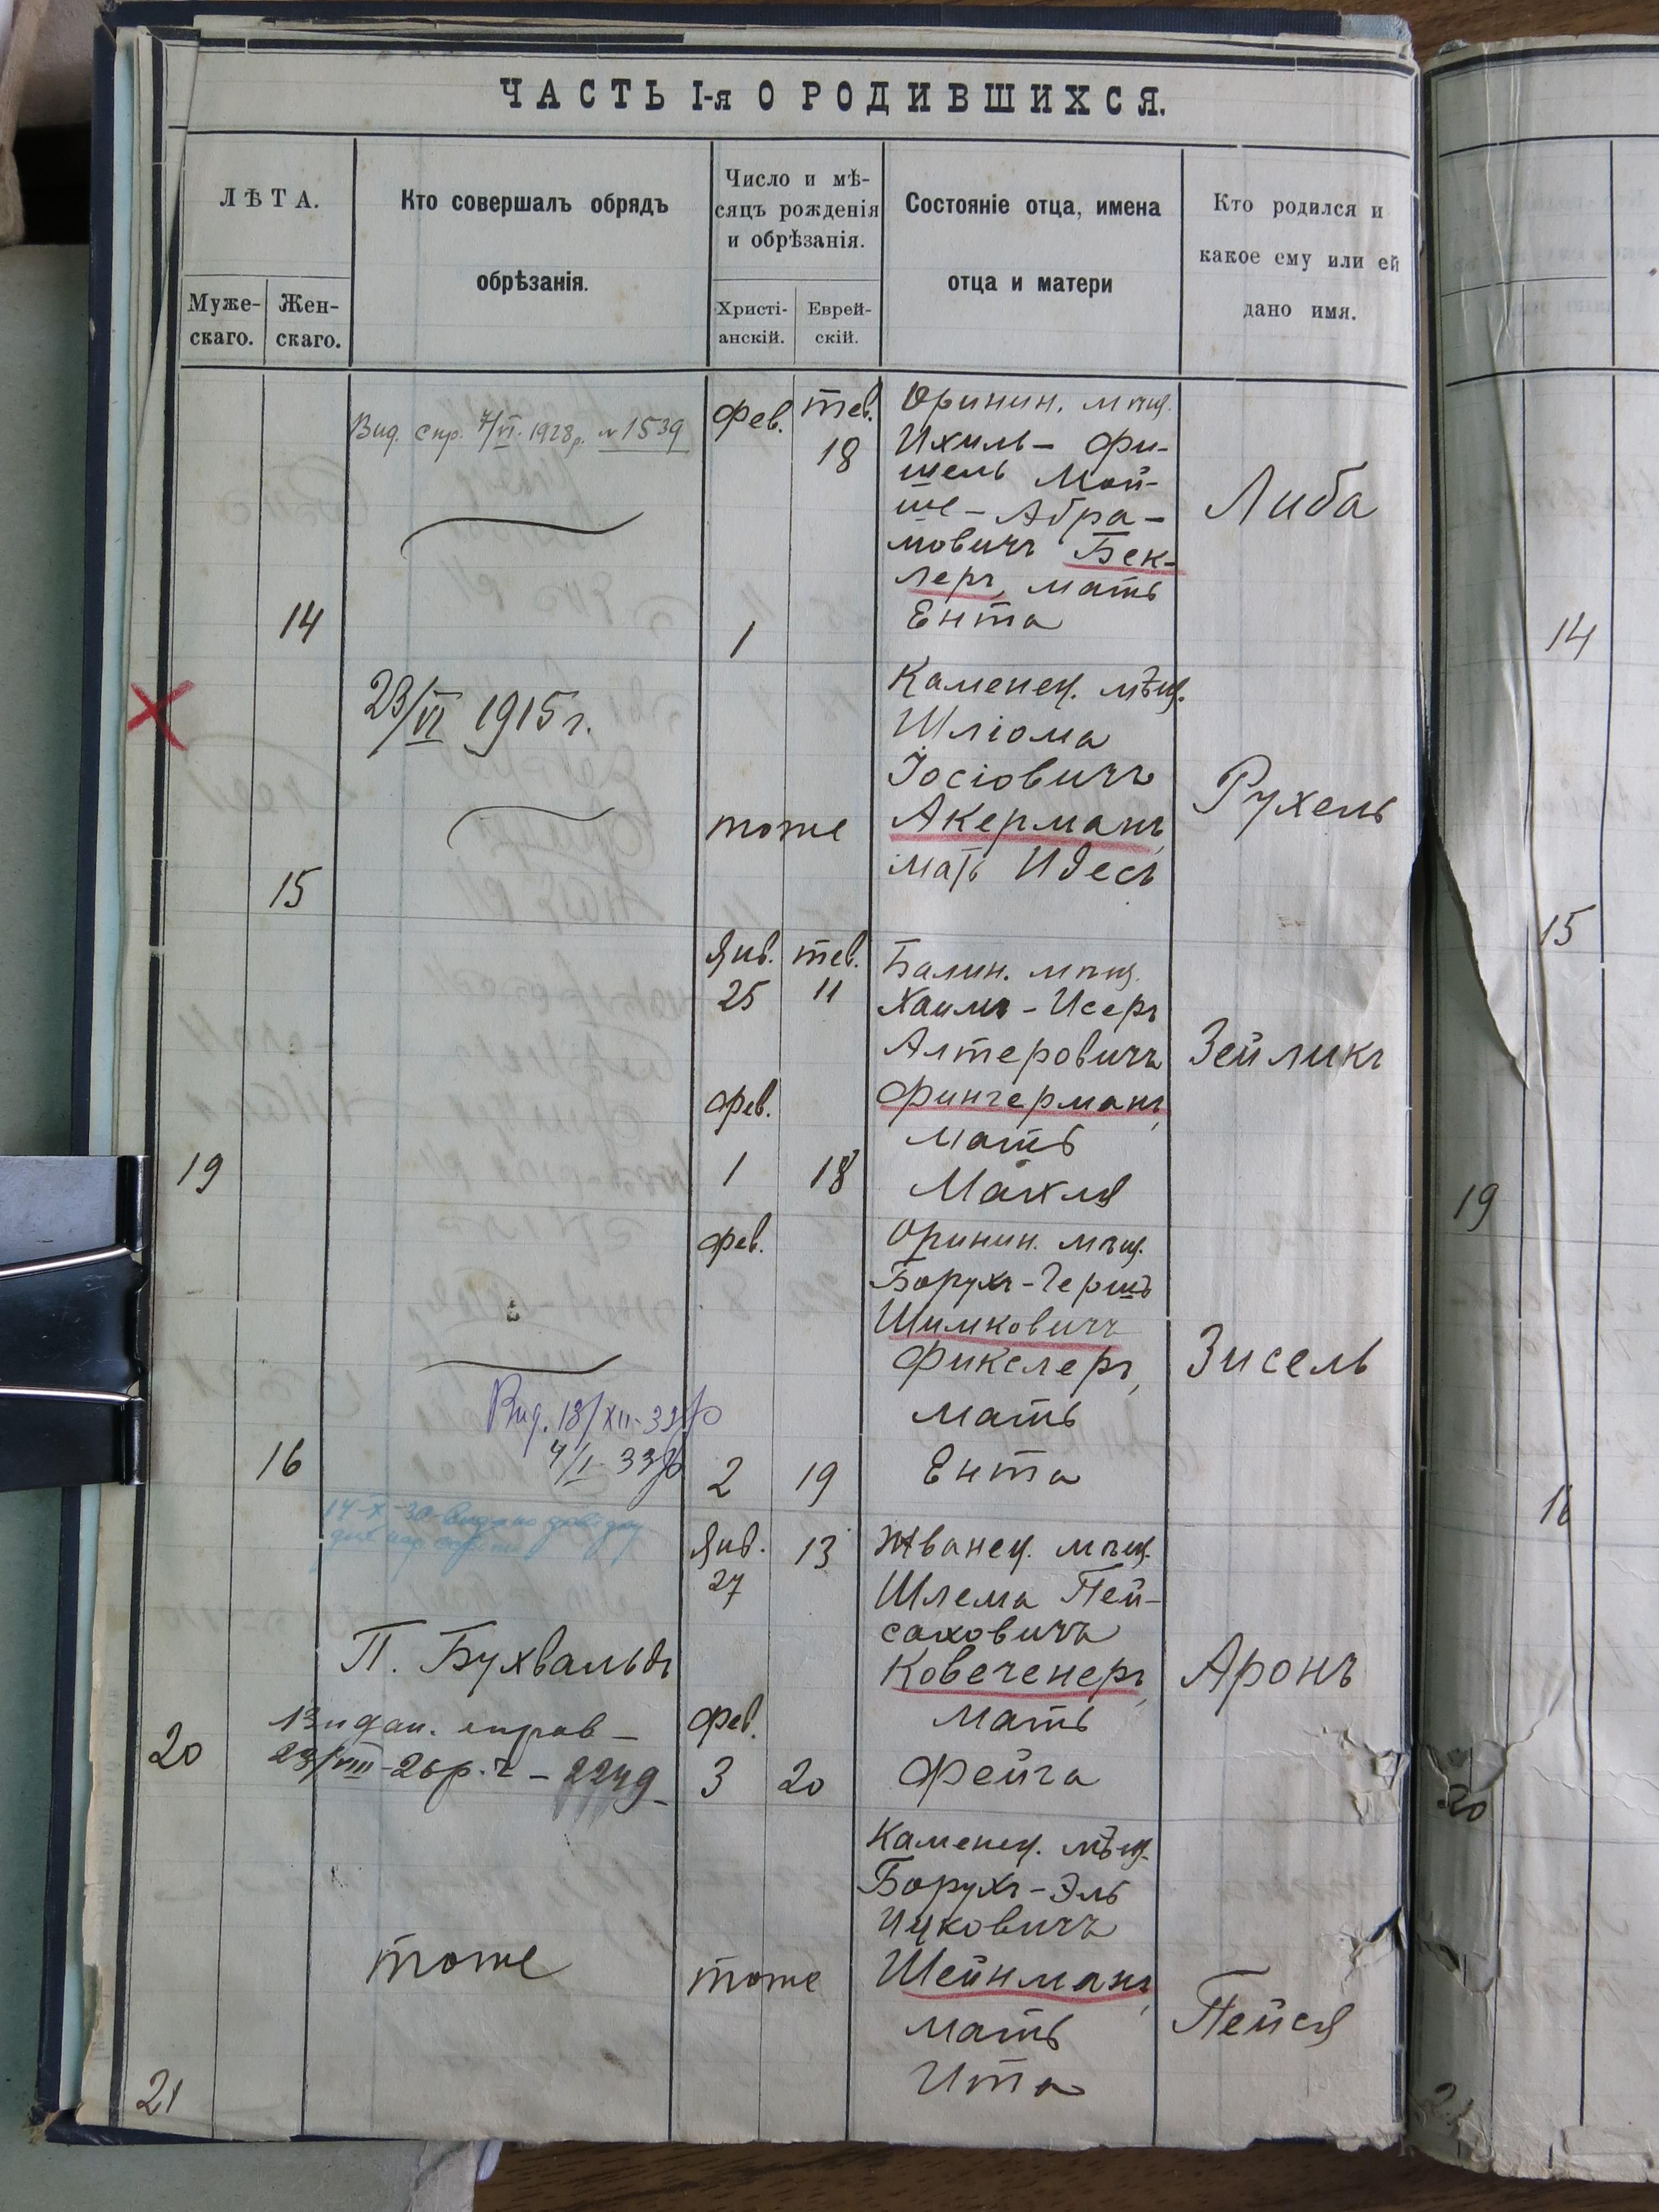 ЧАСТЬ I-я О РОДИВШИХСЯ.
ЛѢТА.
Муже-
скаго.
Жен-
скаго.
Кто совершалъ обрядъ
обрѣзанія.
Число и мѣ-
сяцъ рожденія
и обрѣзанія.
Христі-
анскій.
Еврей-
скій.
Состояніе отца, имена
отца и матери
Кто родился и
какое ему или ей
дано имя.
14
Вид. спр. 7/VI. 1928р. № 1539
Фев.
1
тев.
18
Оринин. мѣщ.
Ихиль- Фи-
шель Мой-
ше-Абра-
мовичъ Бек-
леръ, мать
Ента
Либа
14
15
23/VI 1915 г.
тоже
Каменец. мѣщ.
Шліома
Іосіовичъ
Акерманъ,
мать Идесъ
Рухель
15
19
Янв.
25
фев.
1
тев.
11
18
Балин. мѣщ.
Хаимъ-Исеръ
Алтеровичъ
Фингерманъ,
мать
Махля
Зейликъ
19
16
Вид. 18/XII-33р
4/I-33р
фев.
2
19
Оринин. мѣщ.
Борухъ-Гершъ
Шимковичъ
Фикслеръ,
мать
Ента
Зисель
16
14-X-30
20
П. Бухвальдъ
Видан. справ-
23/VIII-26р. ч-2249
Янв.
27
фев.
3
13
20
Жванец. мѣщ.
Шлема Пей-
саховичъ
Ковеченеръ,
мать
Фейга
Аронъ
20
21
тоже
тоже
Каменец. мѣщ.
Борухъ-Эль
Ицковичъ
Шейнманъ,
мать
Ита
Пейся
21